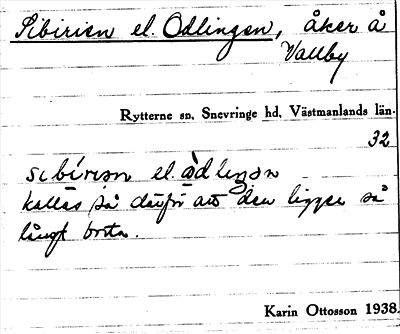 Sibirien el. Odlingen, åker å
Vallby
Rytterne sn, Snevringe hd, Västmanlands län.
32
sibírɩən el. ɷ̀dlɩŋən
kallas så därför att den ligger så
långt borta.
Karin Ottosson 1938.